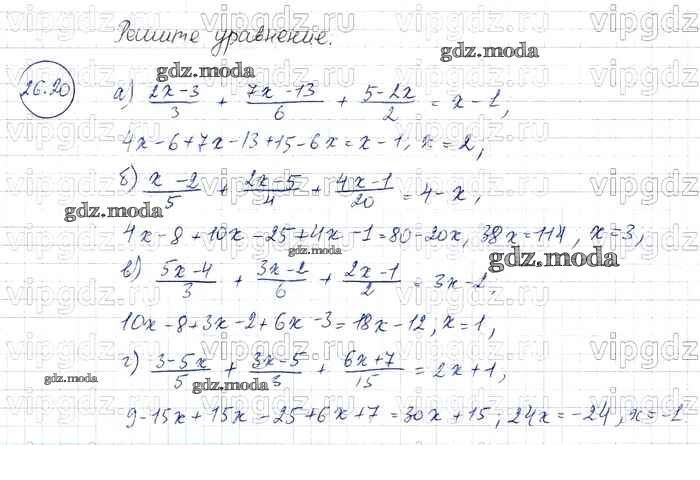 Решите уравнение.
26.20
а) (2x-3)/3 + (7x-13)/6 + (5-2x)/2 = x-1,
4x-6+7x-13+15-6x=x-1, x=2,
б) (x-2)/5 + (2x-5)/4 + (4x-1)/20 = 4-x,
4x-8+10x-25+4x-1=80-20x, 38x=114, x=3,
в) (5x-4)/3 + (3x-2)/6 + (2x-1)/2 = 3x-2,
10x-8+3x-2+6x-3=18x-12, x=1,
г) (3-5x)/5 + (3x-5)/3 + (6x+7)/15 = 2x+1,
9-15x+15x-25+6x+7=30x+15; 24x=-24, x=-1
gdz.moda
gdz.moda
gdz.moda
gdz.moda
gdz.moda
gdz.moda
gdz.moda
vipgdz.ru